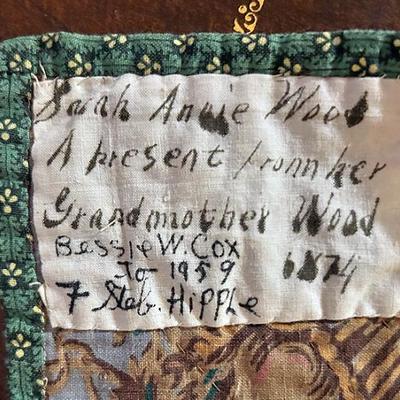 Sarah Annie Wood
A present from her
Grandmother Wood
1874
Bessie W. Cox
To 1959
F Hipple